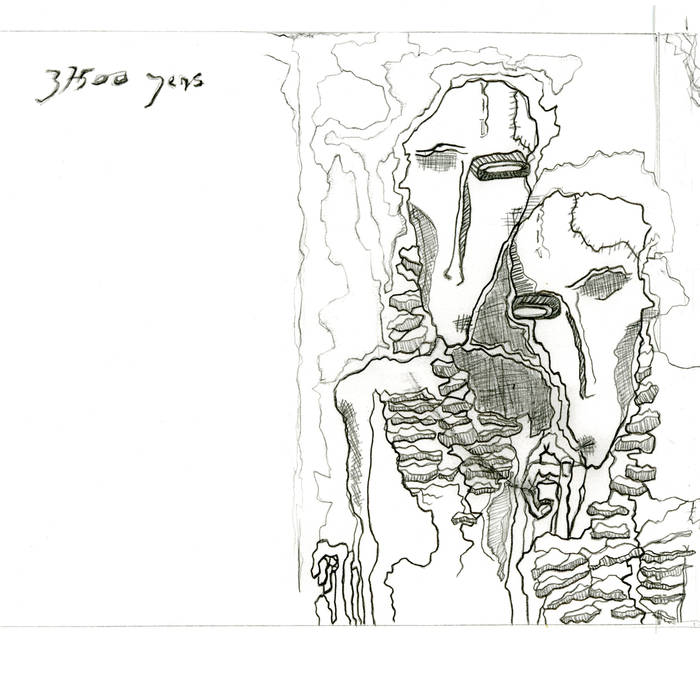 37500 yens